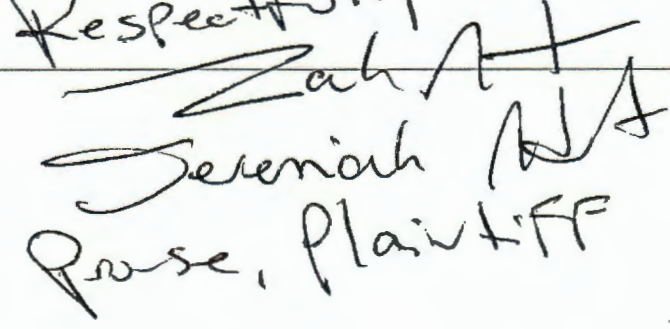 Respectfully
Zah
Jeremiah
Prose, Plaintiff